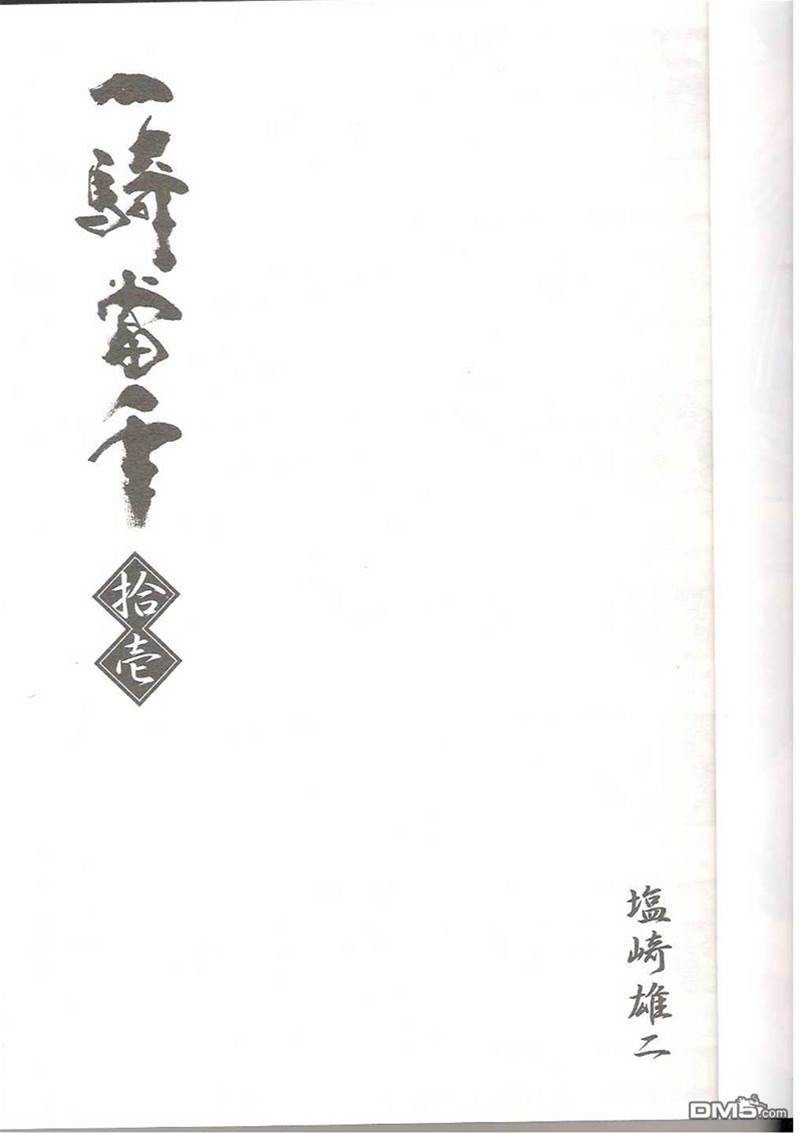 一騎當千
拾壱
塩崎雄二
DM5.com